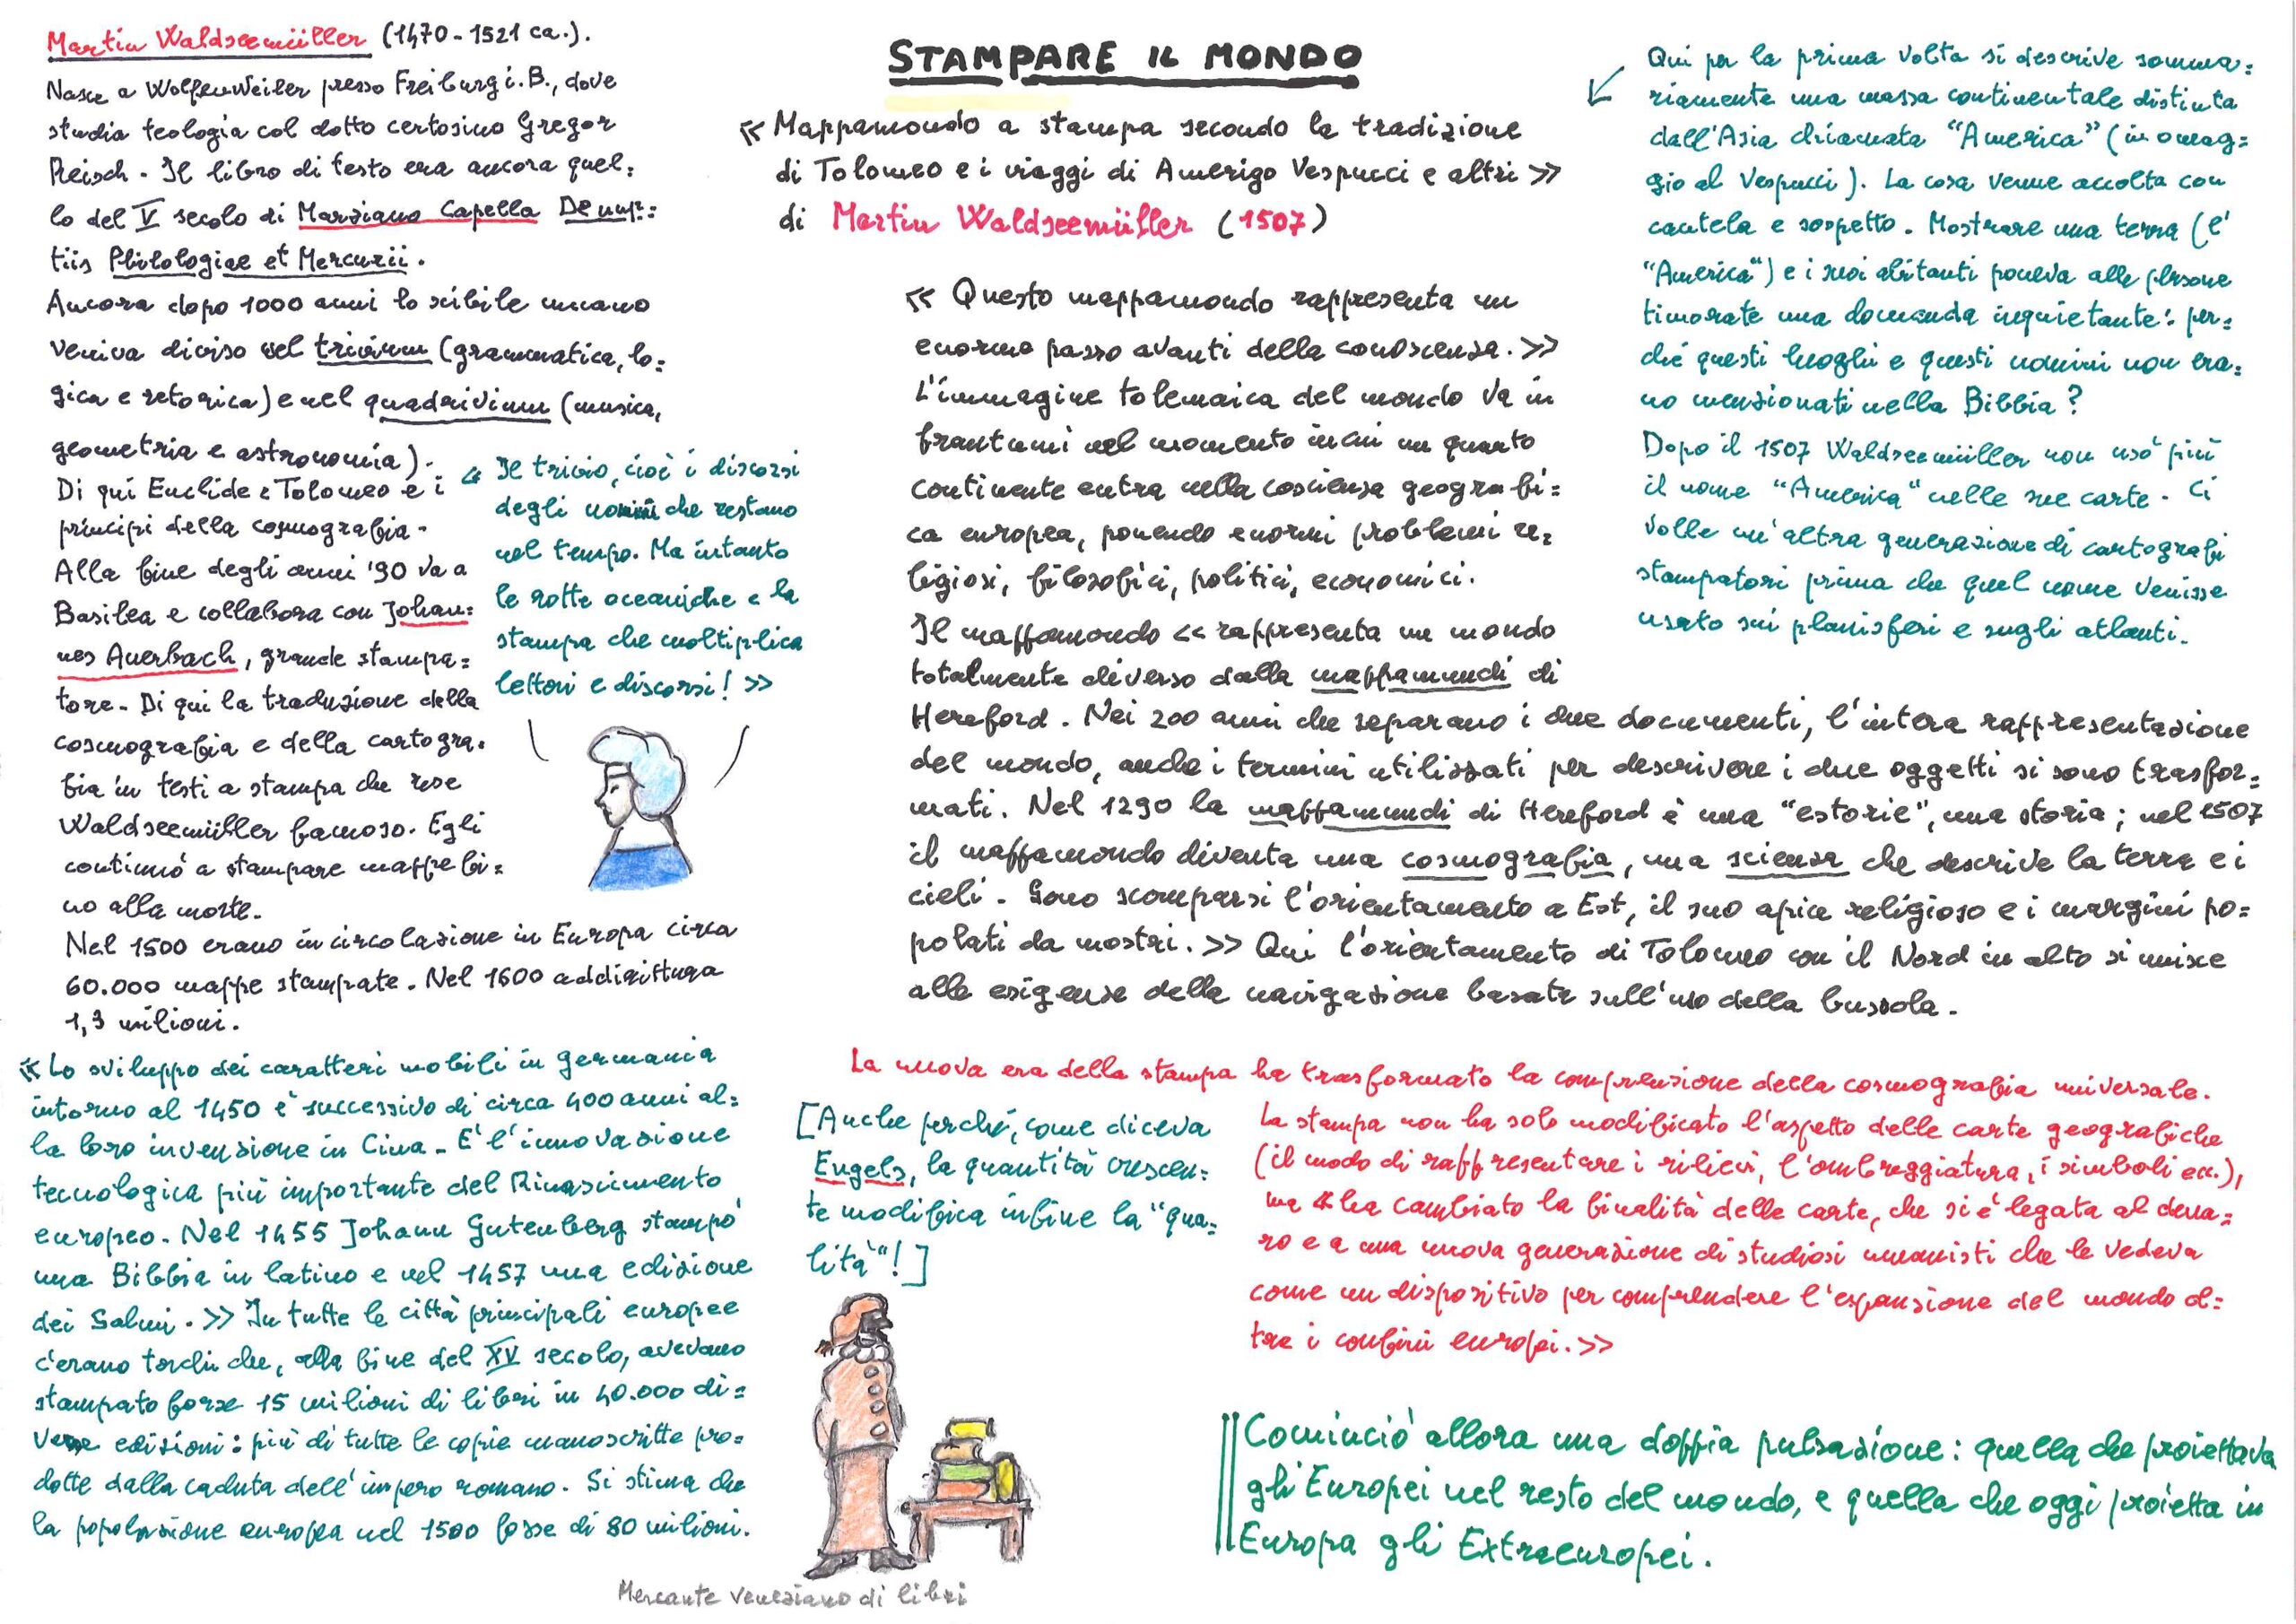 Martin Waldseemüller (1470-1521 ca.).
Nasce a Wolfenweiler presso Freiburg i.B., dove
studia teologia col dotto certosino Gregor
Reisch. Il libro di testo era ancora quel=
lo del V secolo di Marziano Capella De nup=
tiis Philologiae et Mercurii.
Ancora dopo 1000 anni lo scibile umano
veniva diviso nel trivium (grammatica, lo=
gica e retorica) e nel quadrivium (musica,
geometria e astronomia).
Di qui Euclide e Tolomeo e i
principi della cosmografia.
Alla fine degli anni '90 va a
Basilea e collabora con Johan=
nes Auerbach, grande stampa=
tore. Di qui la traduzione della
cosmografia e della cartogra=
fia in testi a stampa che rese
Waldseemüller famoso. Egli
continuò a stampare mappe fi=
no alla morte.
Nel 1500 erano in circolazione in Europa circa
60.000 mappe stampate. Nel 1600 addirittura
1,3 milioni.
« Il trivio, cioè i discorsi
degli uomini che restano
nel tempo. Ma intanto
le rotte oceaniche e la
stampa che moltiplica
lettori e discorsi! »
« Lo sviluppo dei caratteri mobili in Germania
intorno al 1450 è successivo di circa 400 anni al=
la loro invenzione in Cina. E' l'innovazione
tecnologica più importante del Rinascimento
europeo. Nel 1455 Johann Gutenberg stampò
una Bibbia in latino e nel 1457 una edizione
dei Salmi. » In tutte le città principali europee
c'erano torchi che, alla fine del XV secolo, avevano
stampato forse 15 milioni di libri in 40.000 di=
verse edizioni: più di tutte le copie manoscritte pro=
dotte dalla caduta dell'impero romano. Si stima che
la popolazione europea nel 1500 fosse di 80 milioni.
STAMPARE IL MONDO
« Mappamondo a stampa secondo la tradizione
di Tolomeo e i viaggi di Amerigo Vespucci e altri »
di Martin Waldseemüller (1507)
« Questo mappamondo rappresenta un
enorme passo avanti della conoscenza. »
L'immagine tolemaica del mondo va in
frantumi nel momento in cui un quarto
continente entra nella coscienza geografi=
ca europea, ponendo enormi problemi re=
ligiosi, filosofici, politici, economici.
Il mappamondo « rappresenta un mondo
totalmente diverso dalla mappamundi di
Hereford. Nei 200 anni che separano i due documenti, l'intera rappresentazione
del mondo, anche i termini utilizzati per descrivere i due oggetti si sono trasfor=
mati. Nel 1290 la mappamundi di Hereford è una "estorie", una storia; nel 1507
il mappamondo diventa una cosmografia, una scienza che descrive la terra e i
cieli. Sono scomparsi l'orientamento a Est, il suo apice religioso e i margini po=
polati da mostri. » Qui l'orientamento di Tolomeo con il Nord in alto si unisce
alle esigenze della navigazione basate sull'uso della bussola.
Qui per la prima volta si descrive somma=
riamente una massa continentale distinta
dall'Asia chiamata "America" (in omag=
gio al Vespucci). La cosa venne accolta con
cautela e sospetto. Mostrare una terra (l'
"America") e i suoi abitanti poneva alle persone
timorate una domanda inquietante: per=
ché questi luoghi e questi uomini non era=
no menzionati nella Bibbia?
Dopo il 1507 Waldseemüller non usò più
il nome "America" nelle sue carte. Ci
volle un'altra generazione di cartografi
stampatori prima che quel nome venisse
usato sui planisferi e sugli atlanti.
La nuova era della stampa ha trasformato la comprensione della cosmografia universale.
La stampa non ha solo modificato l'aspetto delle carte geografiche
(il modo di rappresentare i rilievi, l'ombreggiatura, i simboli ecc.),
ma « ha cambiato la finalità delle carte, che si è legata al dena=
ro e a una nuova generazione di studiosi umanisti che le vedeva
come un dispositivo per comprendere l'espansione del mondo ol=
tre i confini europei. »
[Anche perché, come diceva
Engels, la quantità crescen=
te modifica infine la "qua=
lità"!]
Cominciò allora una doppia pulsazione: quella che proiettava
gli Europei nel resto del mondo, e quella che oggi proietta in
Europa gli Extraeuropei.
Mercante veneziano di libri